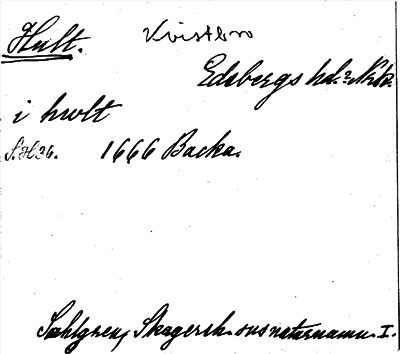 Hult. Kvistbro
Edsbergs hd. Nrke.
i hwlt
S. 36. 1666 Backa.
Sahlgren, Skagersh. sns naturnamn. I.